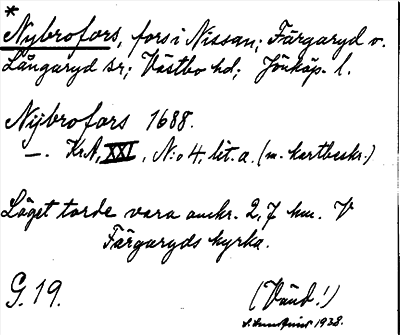 *
Nybrofors, fors i Nissan; Färgaryd o.
Långaryd sr; Västbo hd; Jönköp. l.
Nijbrofors 1688.
—. KrA, XXI, N:o 4, lit. a. (m. kartbeskr.)
Läget torde vara omkr. 2,7 km. V
Färgaryds kyrka.
G. 19.
(Vänd!)
1938.